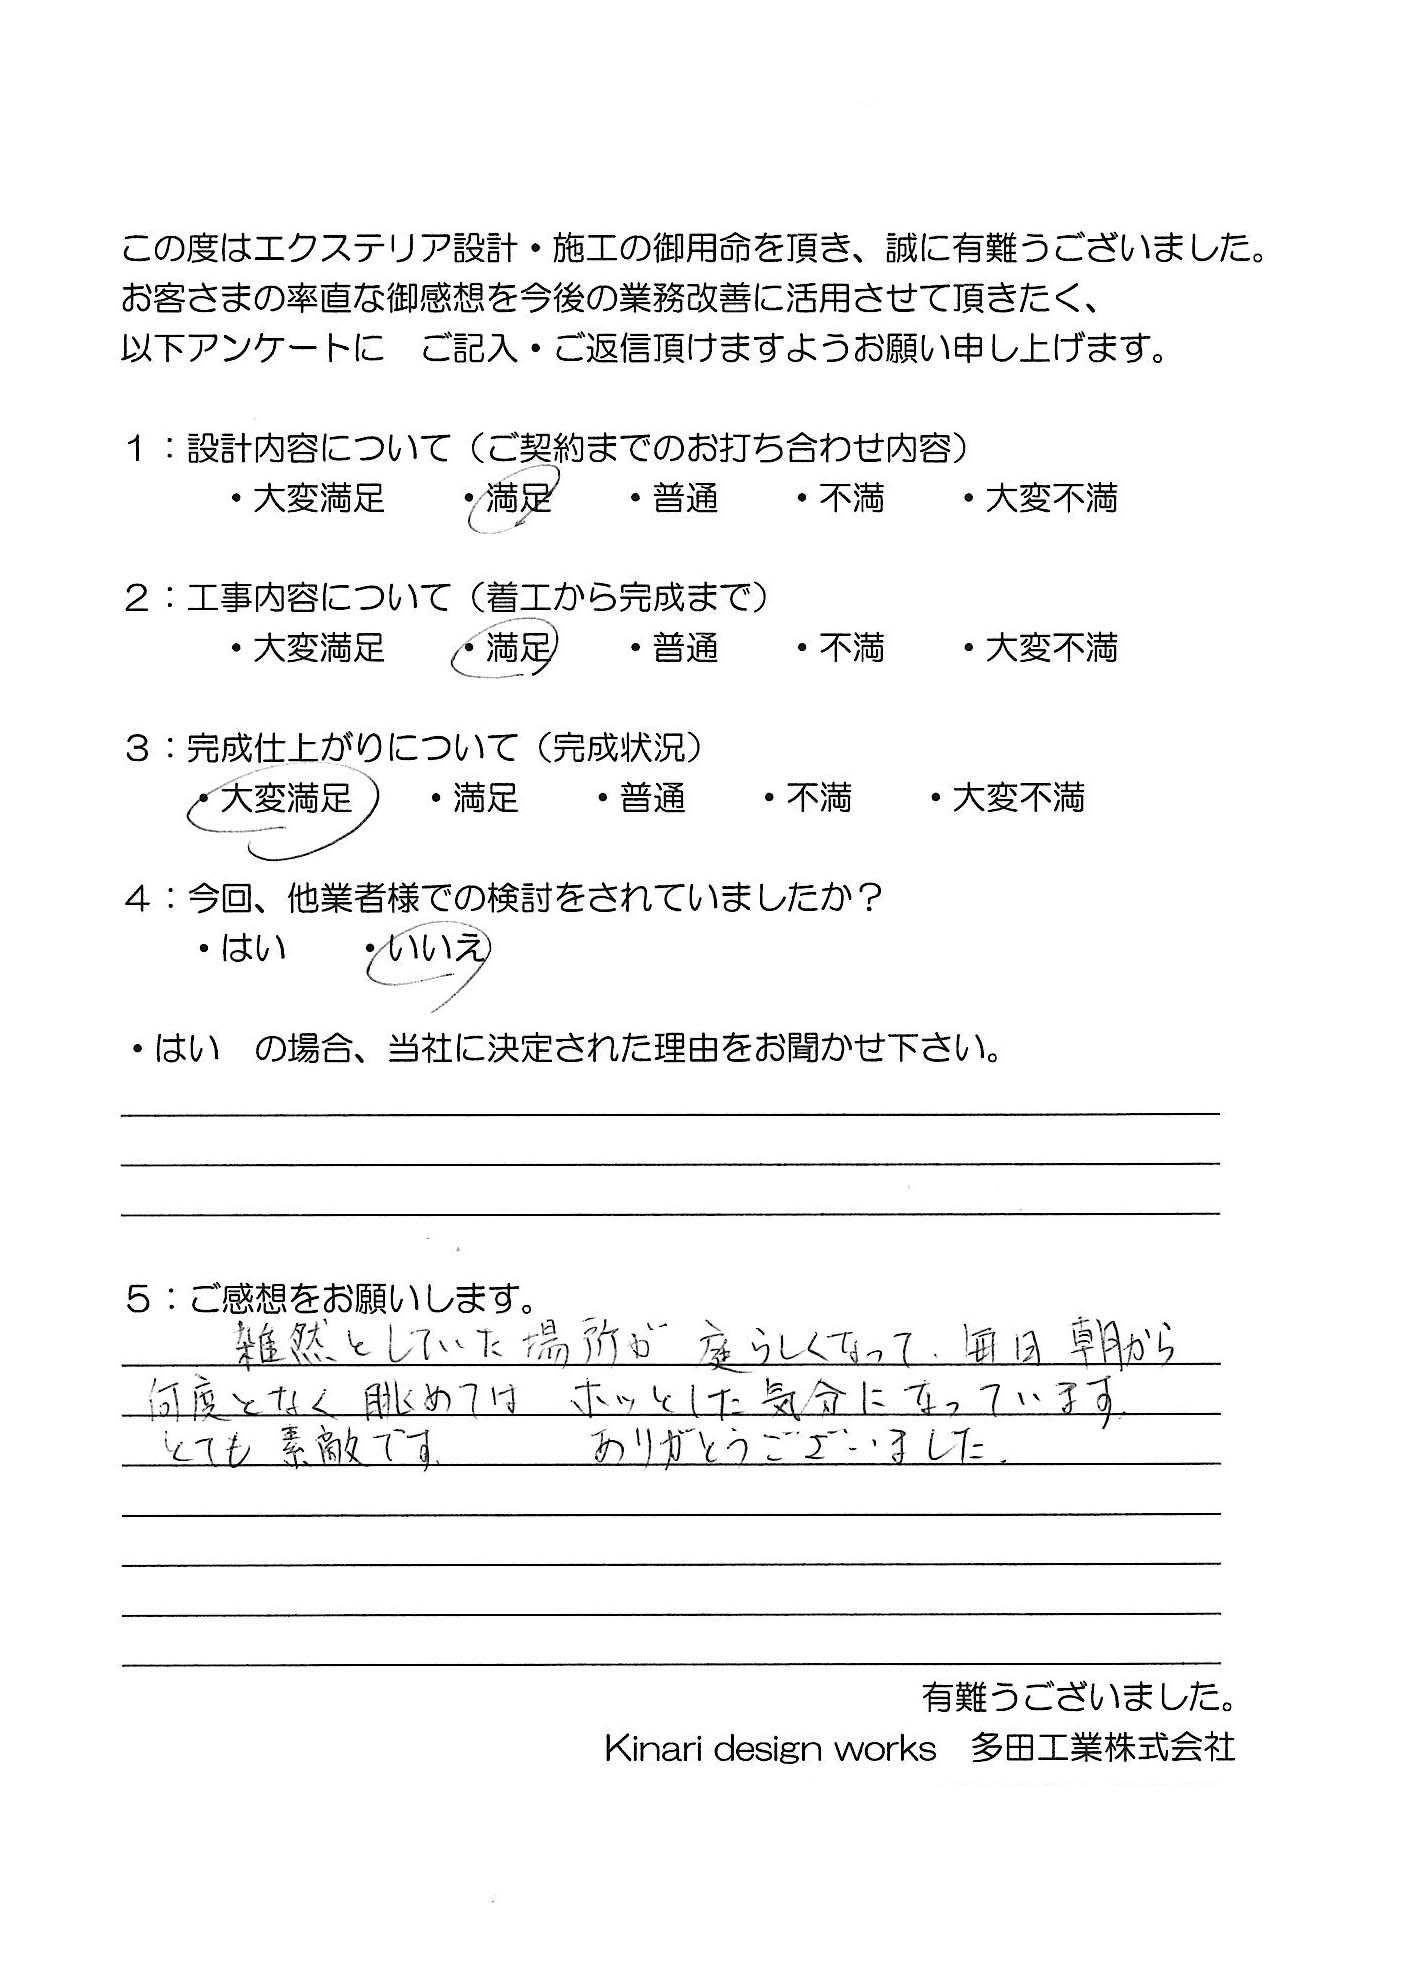 この度はエクステリア設計・施工の御用命を頂き、誠に有難うございました。
お客さまの率直な御感想を今後の業務改善に活用させて頂きたく、
以下アンケートに　ご記入・ご返信頂けますようお願い申し上げます。
１：設計内容について（ご契約までのお打ち合わせ内容）
・大変満足　・満足　・普通　・不満　・大変不満
２：工事内容について（着工から完成まで）
・大変満足　・満足　・普通　・不満　・大変不満
３：完成仕上がりについて（完成状況）
・大変満足　・満足　・普通　・不満　・大変不満
４：今回、他業者様での検討をされていましたか？
・はい　・いいえ
・はい　の場合、当社に決定された理由をお聞かせ下さい。
５：ご感想をお願いします。
雑然としていた場所が 庭らしくなって、毎日 朝から
何度となく 眺めては ホッとした気分になっています。
とても 素敵です。 ありがとうございました。
有難うございました。
Kinari design works　多田工業株式会社